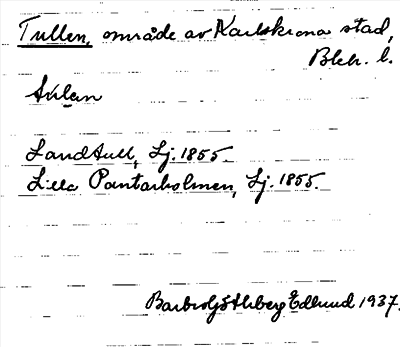 Tullen, område av Karlskrona stad,
Blek. l.
Landtull, Lj. 1855.
Lilla Pantarholmen, Lj. 1855.
Barbro Edlund 1937.